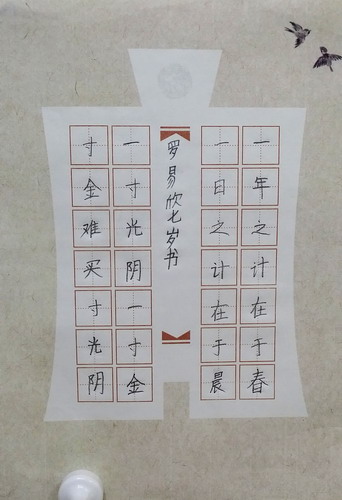 一年之计在于春
一日之计在于晨
罗易欣七岁书
一寸光阴一寸金
寸金难买寸光阴